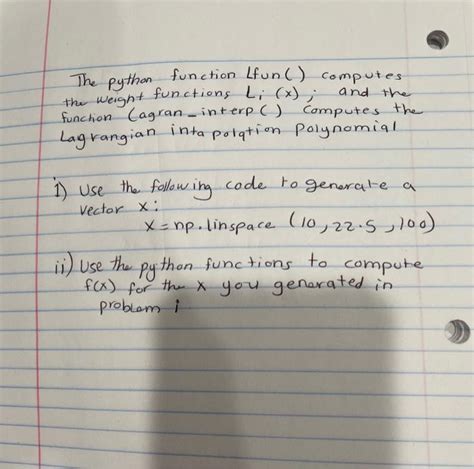 The python function Lfun() computes
the weight functions Li (x) ; and the
function Lagran_interp() Computes the
Lagrangian intapolation Polynomial
i) Use the following code to generate a
vector x:
x = np.linspace (10, 22.5, 100)
ii) Use the python functions to compute
f(x) for the x you generated in
problem i